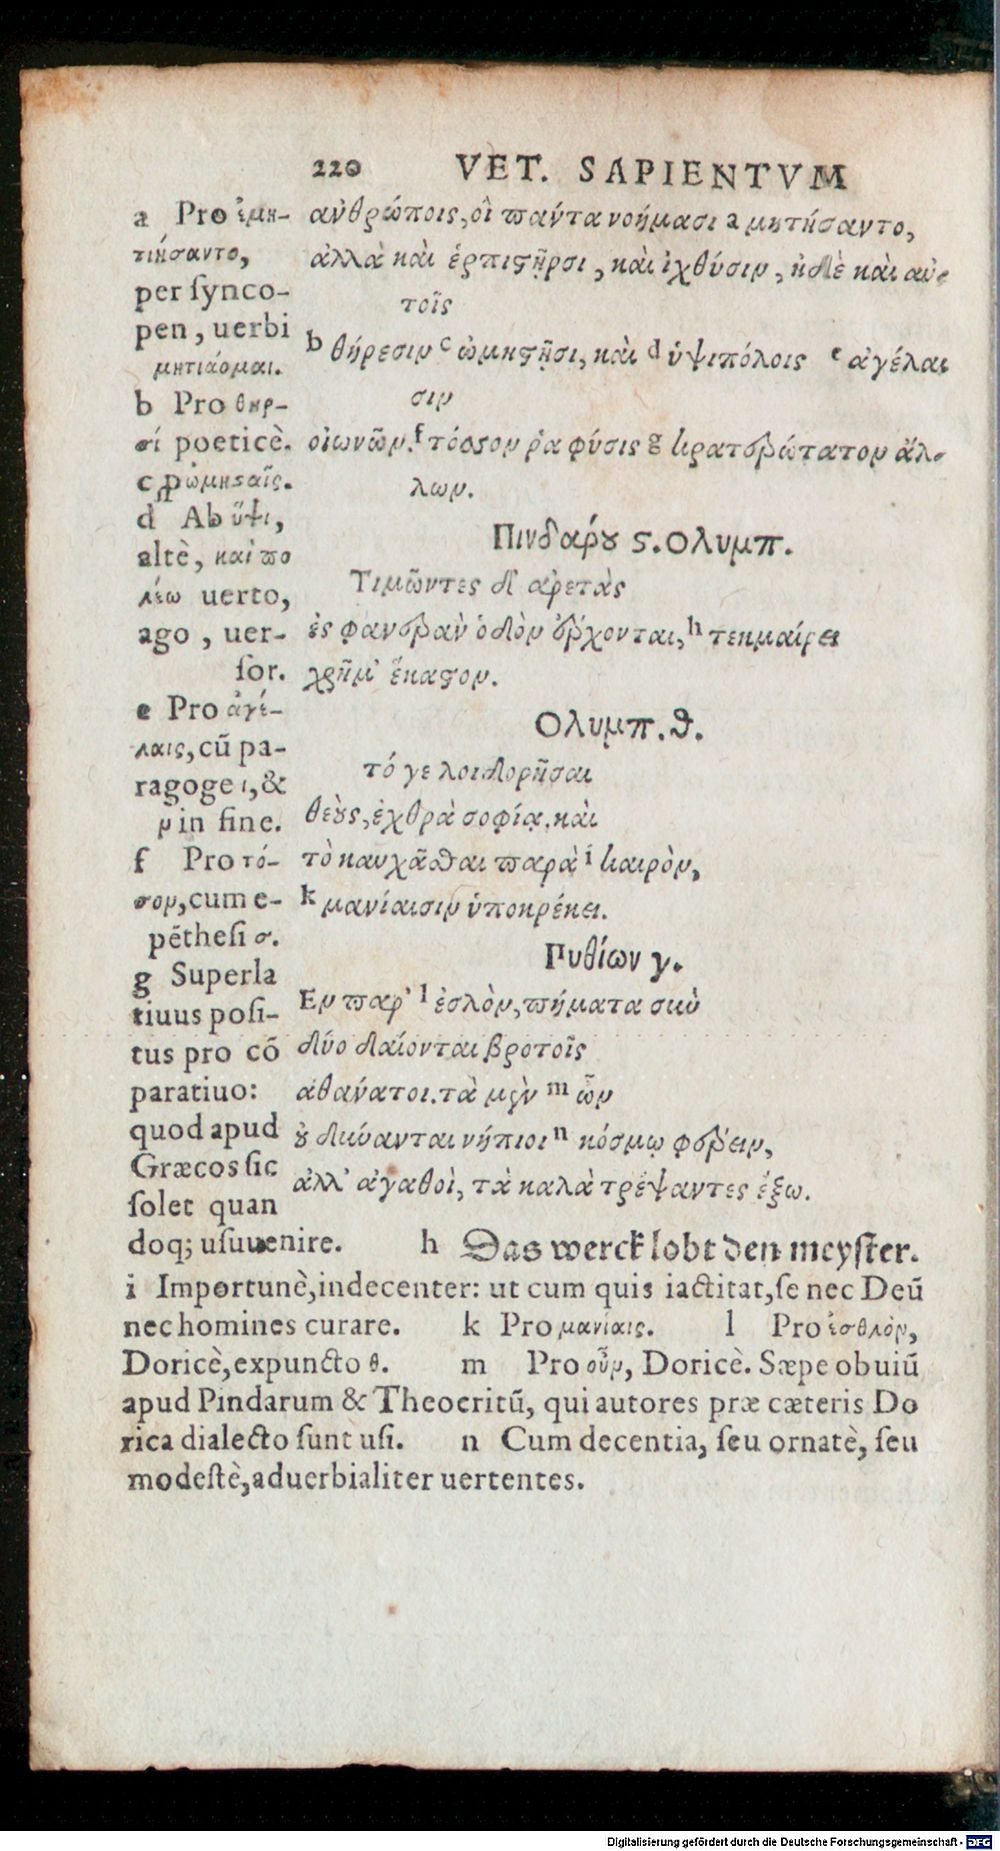 220 VET. SAPIENTVM
ανθρώποις, οἳ πάντα νοήμασι a μητήσαντο,
ἀλλὰ καὶ ἑρπιστῆρσι, καὶ ἰχθύσιν, ἠδὲ καὶ αὐ-
τοῖς
b θήρεσιν c ὠμηστῆσι, καὶ d ὑψιπόλοις e ἀγέλαι
σιν
οἰωνῶν. f τόσσον ῥα φύσις g κρατερώτατον ἄλ-
λων.
Πινδάρου ϛ. Ολυμπ.
Τιμῶντες δ' ἀρετὰς
ἐς φανερὰν ὁδὸν ἔρχονται, h τεκμαίρει
χρῆμ' ἕκαστον.
Ολυμπ. θ.
τό γε λοιδορῆσαι
θεοὺς, ἐχθρὰ σοφία. καὶ
τὸ καυχᾶσθαι παρὰ i καιρὸν,
k μανίαισιν ὑποκρέκει.
Πυθίων γ.
Εν παρ' l ἐσλὸν, πήματα σιὼ
δύο δαίονται βροτοῖς
ἀθανάτοι. τὰ μὲν m ὦν
οὐ δύνανται νήπιοι n κόσμῳ φέρειν,
ἀλλ' ἀγαθοὶ, τὰ καλὰ τρέψαντες ἔξω.
a Pro ἐμη-
τιήσαντο,
per ſynco-
pen, uerbi
μητιάομαι.
b Pro θηρ-
σί poeticè.
c ꝓ ὠμησαῖς.
d Ab ὕψι,
altè, καὶ πο
λέω uerto,
ago, uer-
ſor.
e Pro ἀγέ-
λαις, cũ pa-
ragoge ι, &
ν in fine.
f Pro τό-
σον, cum e-
pẽtheſi σ.
g Superla
tiuus poſi-
tus pro cõ
paratiuo:
quod apud
Græcos ſic
ſolet quan
doq; uſuuenire. h Das werck lobt den meyſter.
i Importunè, indecenter: ut cum quis iactitat, ſe nec Deũ
nec homines curare. k Pro μανίαις. l Pro ἐσθλὸν,
Doricè, expuncto θ. m Pro οὖν, Doricè. Sæpe obuiũ
apud Pindarum & Theocritũ, qui autores præ cæteris Do
rica dialecto ſunt uſi. n Cum decentia, ſeu ornatè, ſeu
modeſtè, aduerbialiter uertentes.
Digitalisierung gefördert durch die Deutsche Forschungsgemeinschaft - DFG